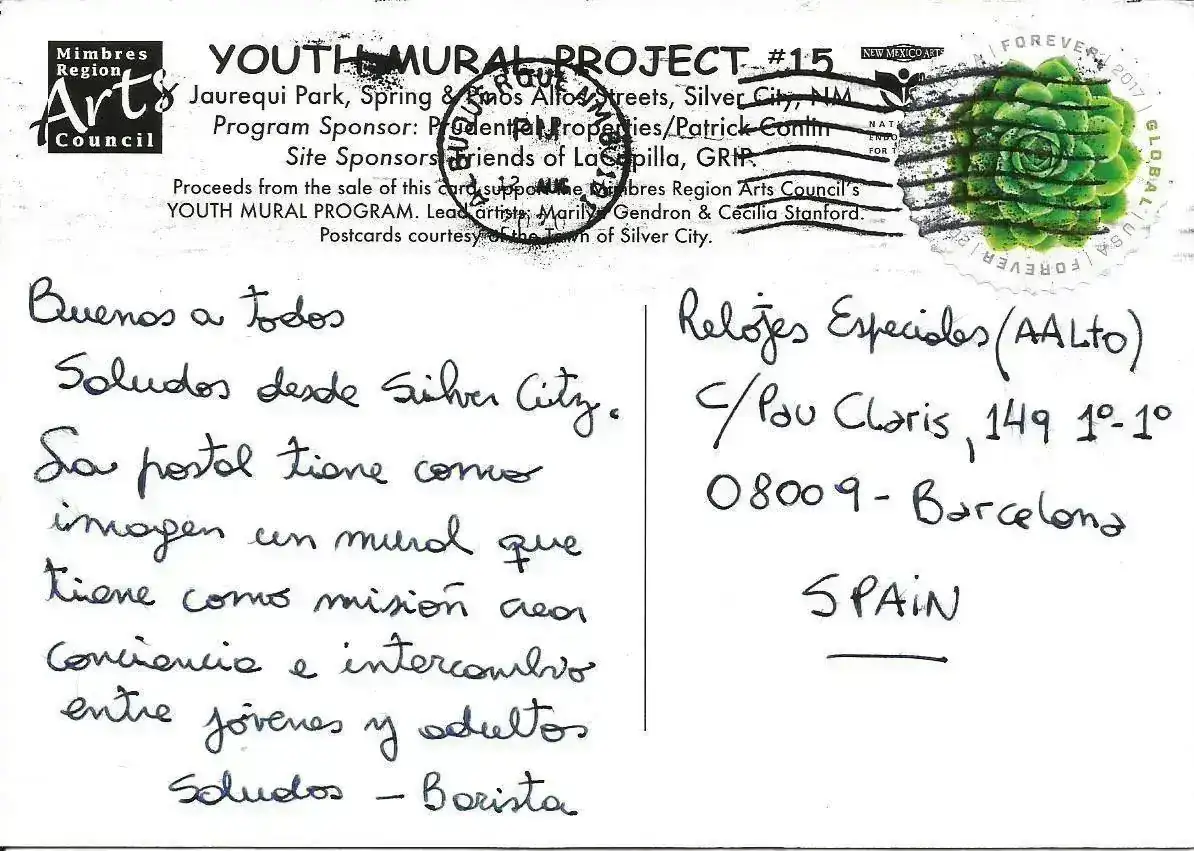 Mimbres
Region
Arts
Council
YOUTH MURAL PROJECT #15
Jaurequi Park, Spring & Pinos Altos Streets, Silver City, NM
Program Sponsor: Prudential Properties/Patrick Conlin
Site Sponsors: Friends of LaCapilla, GRIP.
Proceeds from the sale of this card support the Mimbres Region Arts Council's
YOUTH MURAL PROGRAM. Lead artists: Marilyn Gendron & Cecilia Stanford.
Postcards courtesy of the Town of Silver City.
NEW MEXICO ARTS
ALBUQUERQUE NM
12 AUG
FOREVER | 2017 | GLOBAL | USA | FOREVER
Buenos a todos
Saludos desde Silver City.
La postal tiene como
imagen un mural que
tiene como misión crear
conciencia e intercambio
entre jóvenes y adultos
Saludos - Barista
Relojes Especiales (AALto)
C/Pau Claris, 149 1º-1º
08009 - Barcelona
SPAiN